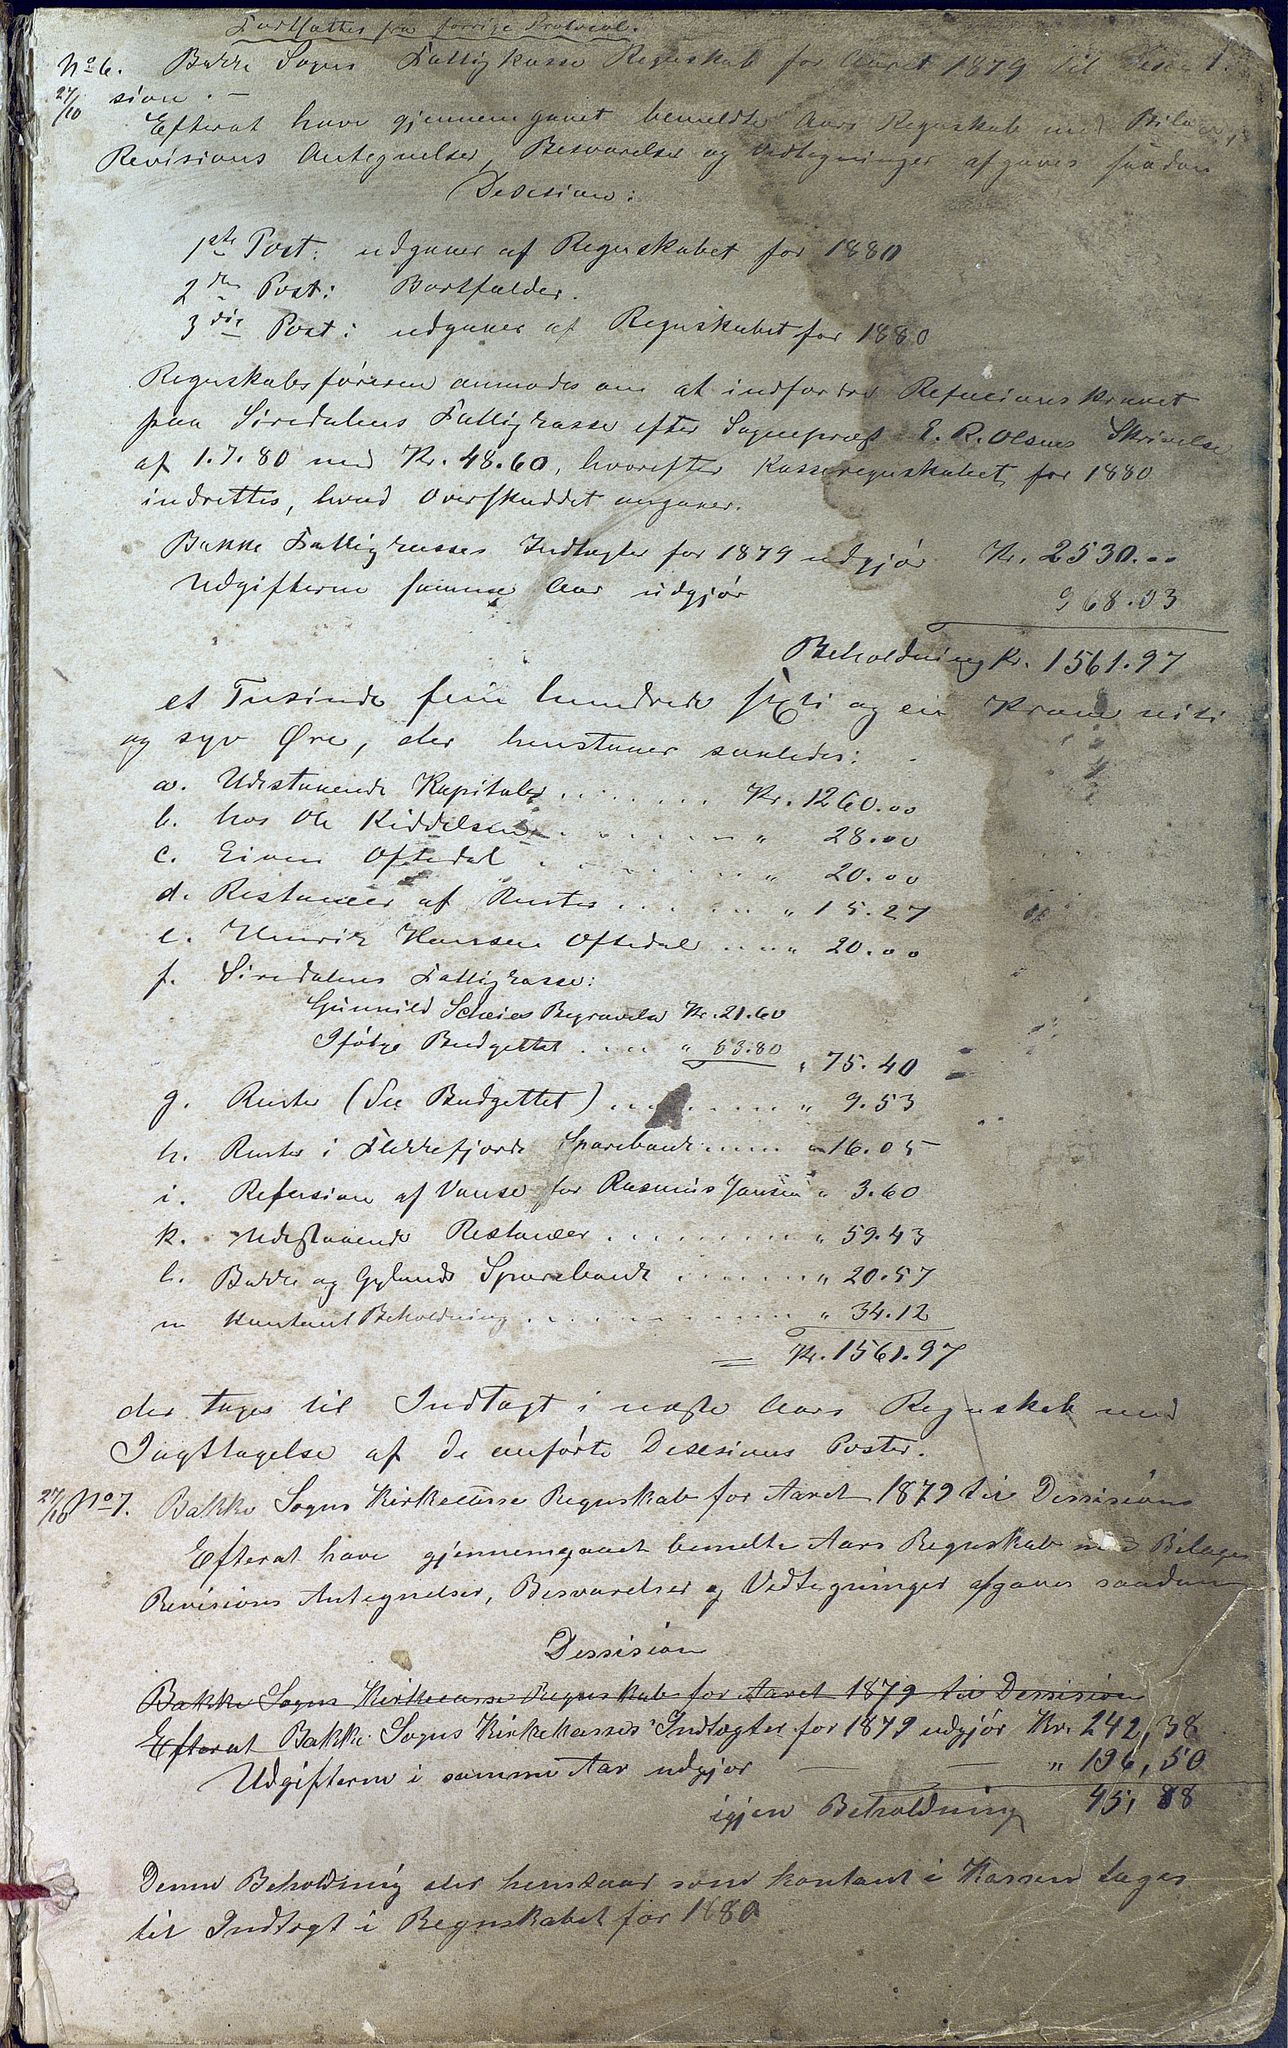 Fortsættes fra forrige Protocol.
No 6. Bakke Sogns Fattigkasse Regnskab for Aaret 1879 til Desi- 1.
27/10 sion. -
Efterat have gjennemgaaet bemeldte Aars Regnskab med Bilage,
Revisions Antegnelser, Besvarelser og Vedtegninger afgaves saadan
Desision:
1ste Post: udgaaer af Regnskabet for 1880
2den Post: Bortfalder.
3die Post: udgaaer af Regnskabet for 1880
Regnskabsføreren anmodes om at indfordre Refusionskravet
paa Siredalens Fattigkasse efter Sognepræst E. R. Olsens Skrivelse
af 1.7.80 med Kr. 48.60, hvorefter Kasseregnskabet for 1880
indrettes, hvad Overskuddet angaaer.
Bakke Fattigkasses Indtægter for 1879 udgjør Kr. 2530.00
Udgifterne samme Aar udgjør 968.03
Beholdning Kr. 1561.97
et Tusinde fem hundrede sexti og en Krone niti
og syv Øre, der henstaaer saaledes:
a. Udestaaende Kapitaler ....... Kr. 1260.00
b. hos Ole Kiddelsen ....... " 28.00
c. Eiven Oftedal ....... " 20.00
d. Restancer af Renter ...... " 15.27
e. Henrik Hansen Oftedal .... " 20.00
f. Siredalens Fattigkasse:
Gunnild Scheies Begravelse Kr. 21.60
Ifølge Budgettet .... " 53.80 " 75.40
g. Renter (See Budgettet) ......... " 9.53
h. Renter i Flekkefjords Sparebank ..... " 16.05
i. Refusion af Vanse for Rasmus Jansen " 3.60
k. Udestaaende Restancer ......... " 59.43
l. Bakke og Gylands Sparebank ....... " 20.57
m Kontant Beholdning ........... " 34.12
= Kr. 1561.97
der tages til Indtægt i næste Aars Regnskab med
Iagttagelse af de anførte Desisions Poster.
27/10 No 7. Bakke Sogns Kirkecasse Regnskab for Aaret 1879 til Dessisions
Efterat have gjennemgaaet bemelte Aars Regnskab med Bilager
Revisions Antegnelser, Besvarelser og Vedtegninger afgaves saadan
Dessision
Bakke Sogns Kirkecasse Regnskab for Aaret 1879 til Dessision
Efterat Bakke Sogns Kirkekasses Indtægter for 1879 udgjør Kr. 242,38
Udgifterne i samme Aar udgjør — — " 196,50
igjen Beholdning 45,88
Denne Beholdning der henstaar som kontant i Kassen tages
til Indtægt i Regnskabet for 1880